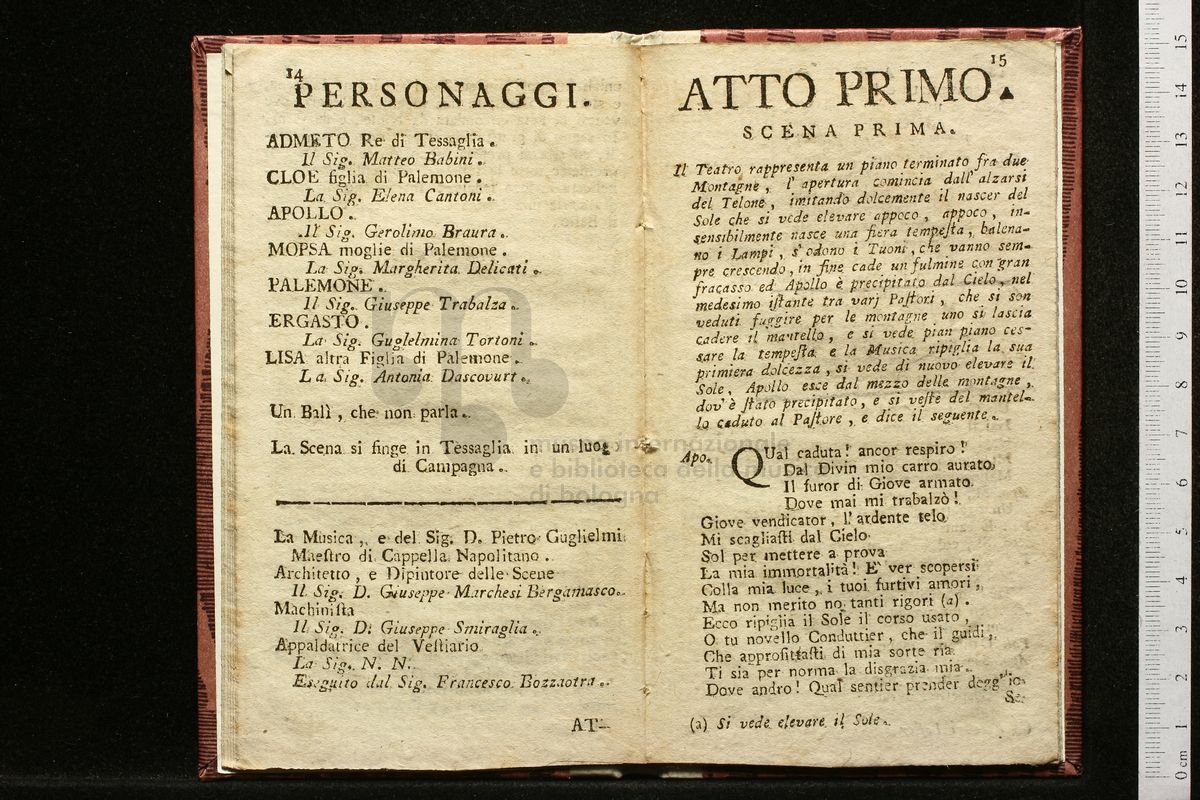 14
PERSONAGGI.
ADMETO Re di Tessaglia.
Il Sig. Matteo Babini.
CLOE figlia di Palemone.
La Sig. Elena Cantoni.
APOLLO.
Il Sig. Gerolimo Braura.
MOPSA moglie di Palemone.
La Sig. Margherita Delicati.
PALEMONE.
Il Sig. Giuseppe Trabalza.
ERGASTO.
La Sig. Guglelmina Tortoni.
LISA altra Figlia di Palemone.
La Sig. Antonia Dascovurt.
Un Balì, che non parla.
La Scena si finge in Tessaglia in un luog
di Campagna.
La Musica, e del Sig. D. Pietro Guglielmi
Maestro di Cappella Napolitano.
Architetto, e Dipintore delle Scene
Il Sig. D. Giuseppe Marchesi Bergamasco.
Machinista
Il Sig. D. Giuseppe Smiraglia.
Appaldatrice del Vestiario
La Sig. N. N.
Eseguito dal Sig. Francesco Bozzaotra.
AT-
15
ATTO PRIMO.
SCENA PRIMA.
Il Teatro rappresenta un piano terminato fra due
Montagne, l'apertura comincia dall'alzarsi
del Telone, imitando dolcemente il nascer del
Sole che si vede elevare appoco, appoco, in-
sensibilmente nasce una fiera tempesta, balena-
no i Lampi, s'odono i Tuoni, che vanno sem-
pre crescendo, in fine cade un fulmine con gran
fracasso ed Apollo è precipitato dal Cielo, nel
medesimo istante tra varj Pastori, che si son
veduti fuggire per le montagne uno si lascia
cadere il mantello, e si vede pian piano ces-
sare la tempesta e la Musica ripiglia la sua
primiera dolcezza, si vede di nuovo elevare il
Sole, Apollo esce dal mezzo delle montagne,
dov'è stato precipitato, e si veste del mantel-
lo caduto al Pastore, e dice il seguente.
Apo. QUal caduta! ancor respiro!
Dal Divin mio carro aurato
Il furor di Giove armato
Dove mai mi trabalzò!
Giove vendicator, l'ardente telo
Mi scagliasti dal Cielo
Sol per mettere a prova
La mia immortalità! E' ver scopersi
Colla mia luce, i tuoi furtivi amori,
Ma non merito no tanti rigori (a).
Ecco ripiglia il Sole il corso usato,
O tu novello Conduttier, che il guidi,
Che approfittasti di mia sorte ria
Ti sia per norma la disgrazia mia.
Dove andro! Qual sentier prender degg'io
Se
(a) Si vede elevare il Sole.
museo internazionale
e biblioteca della musica
di bologna
0 cm 1 2 3 4 5 6 7 8 9 10 11 12 13 14 15